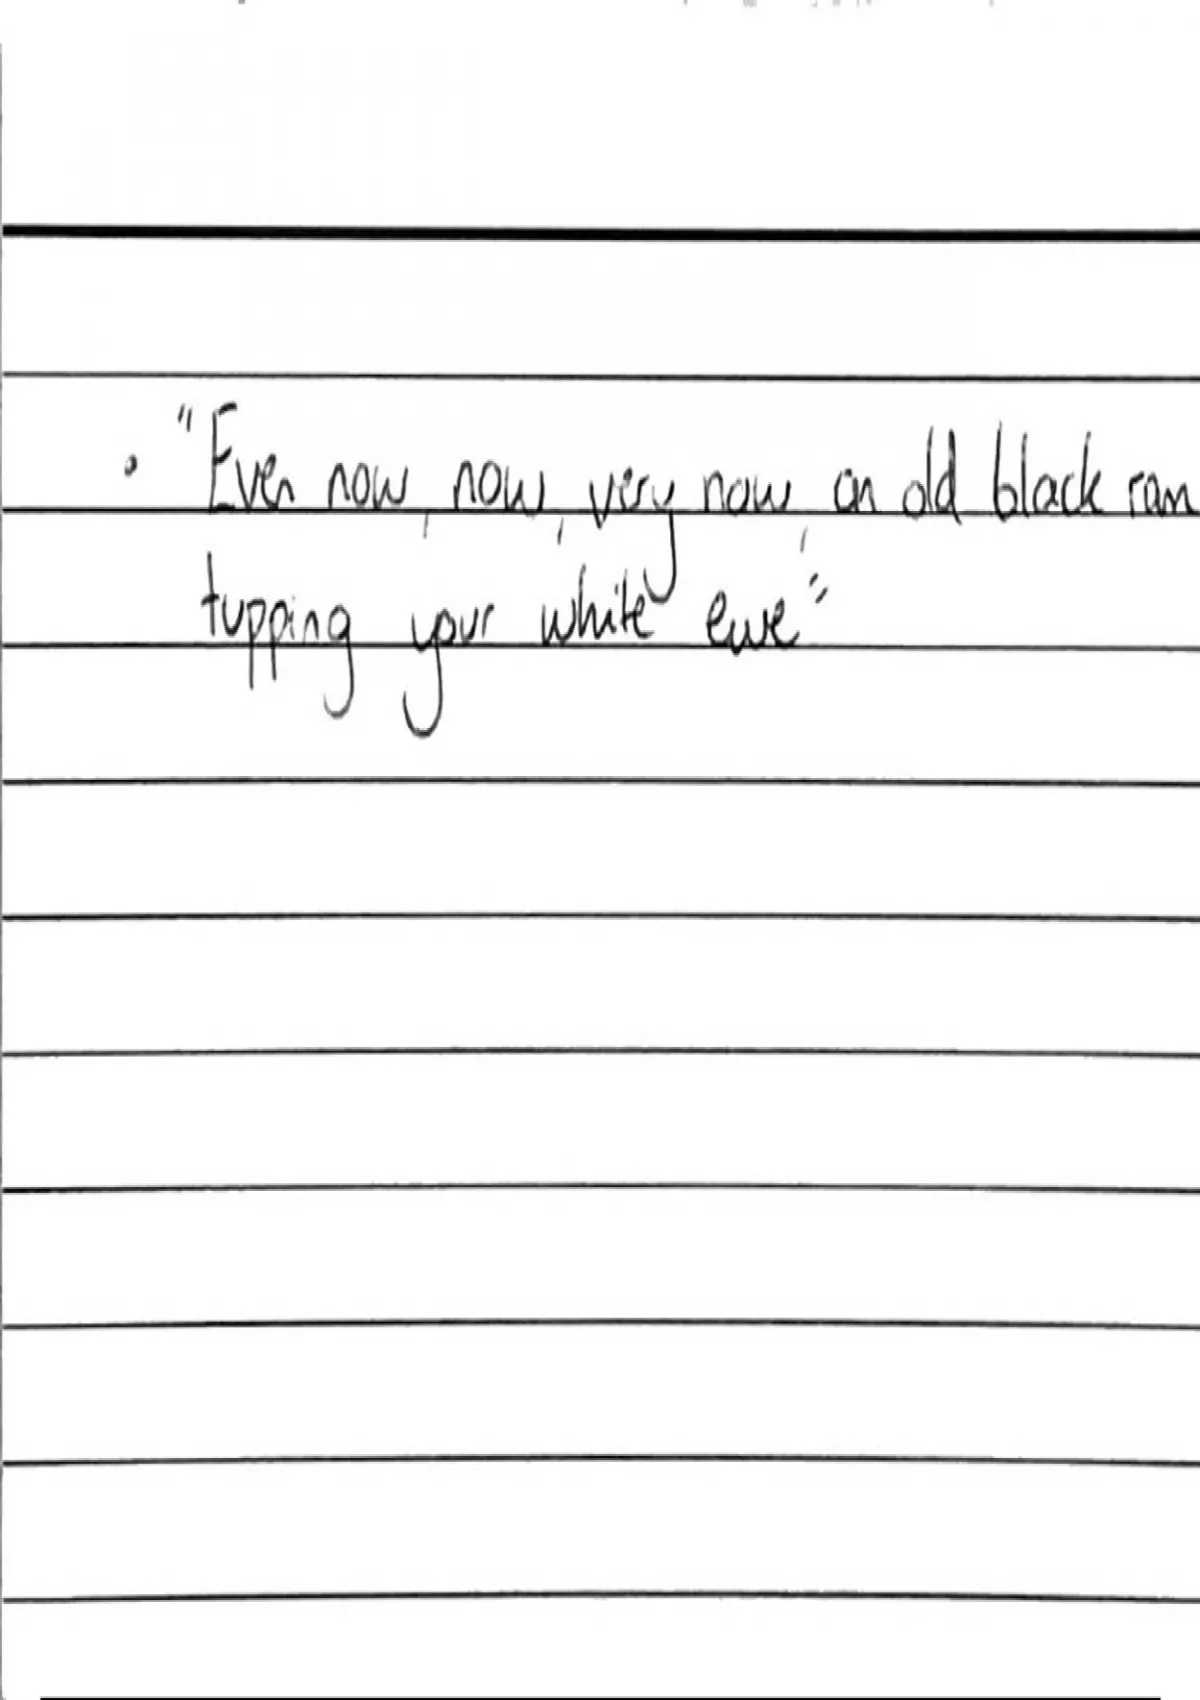 • "Even now, now, very now, an old black ram
tupping your white ewe"